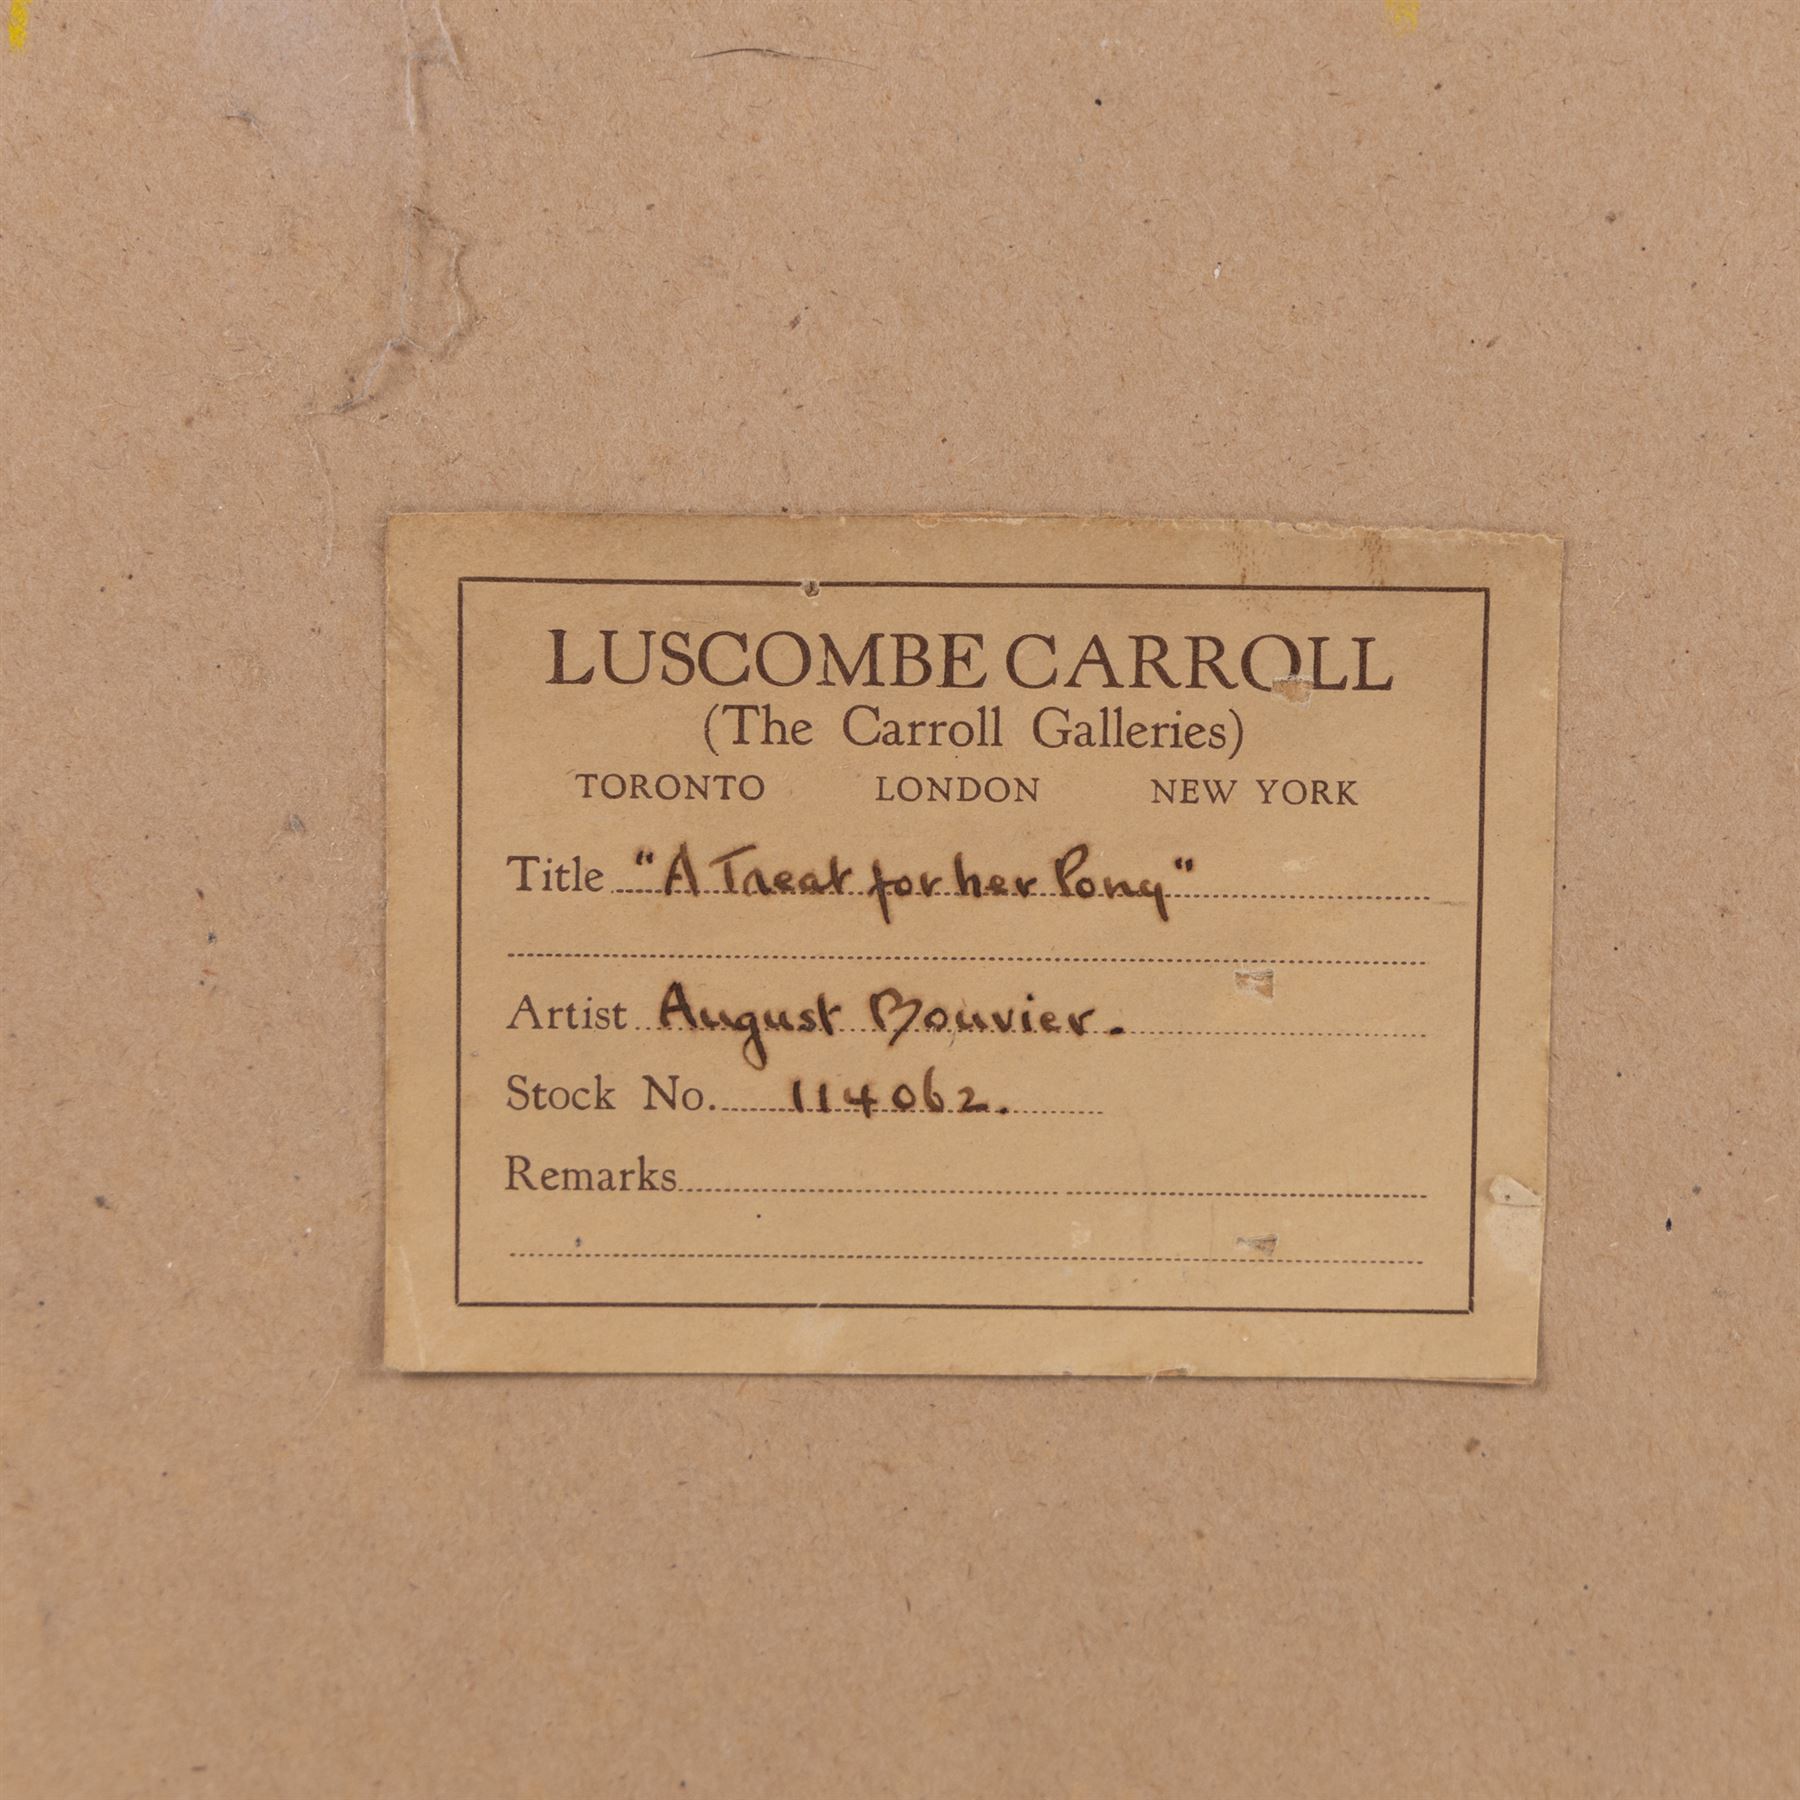 LUSCOMBE CARROLL
(The Carroll Galleries)
TORONTO LONDON NEW YORK
Title "A Treat for her Pony"
Artist August Bouvier.
Stock No. 114062.
Remarks